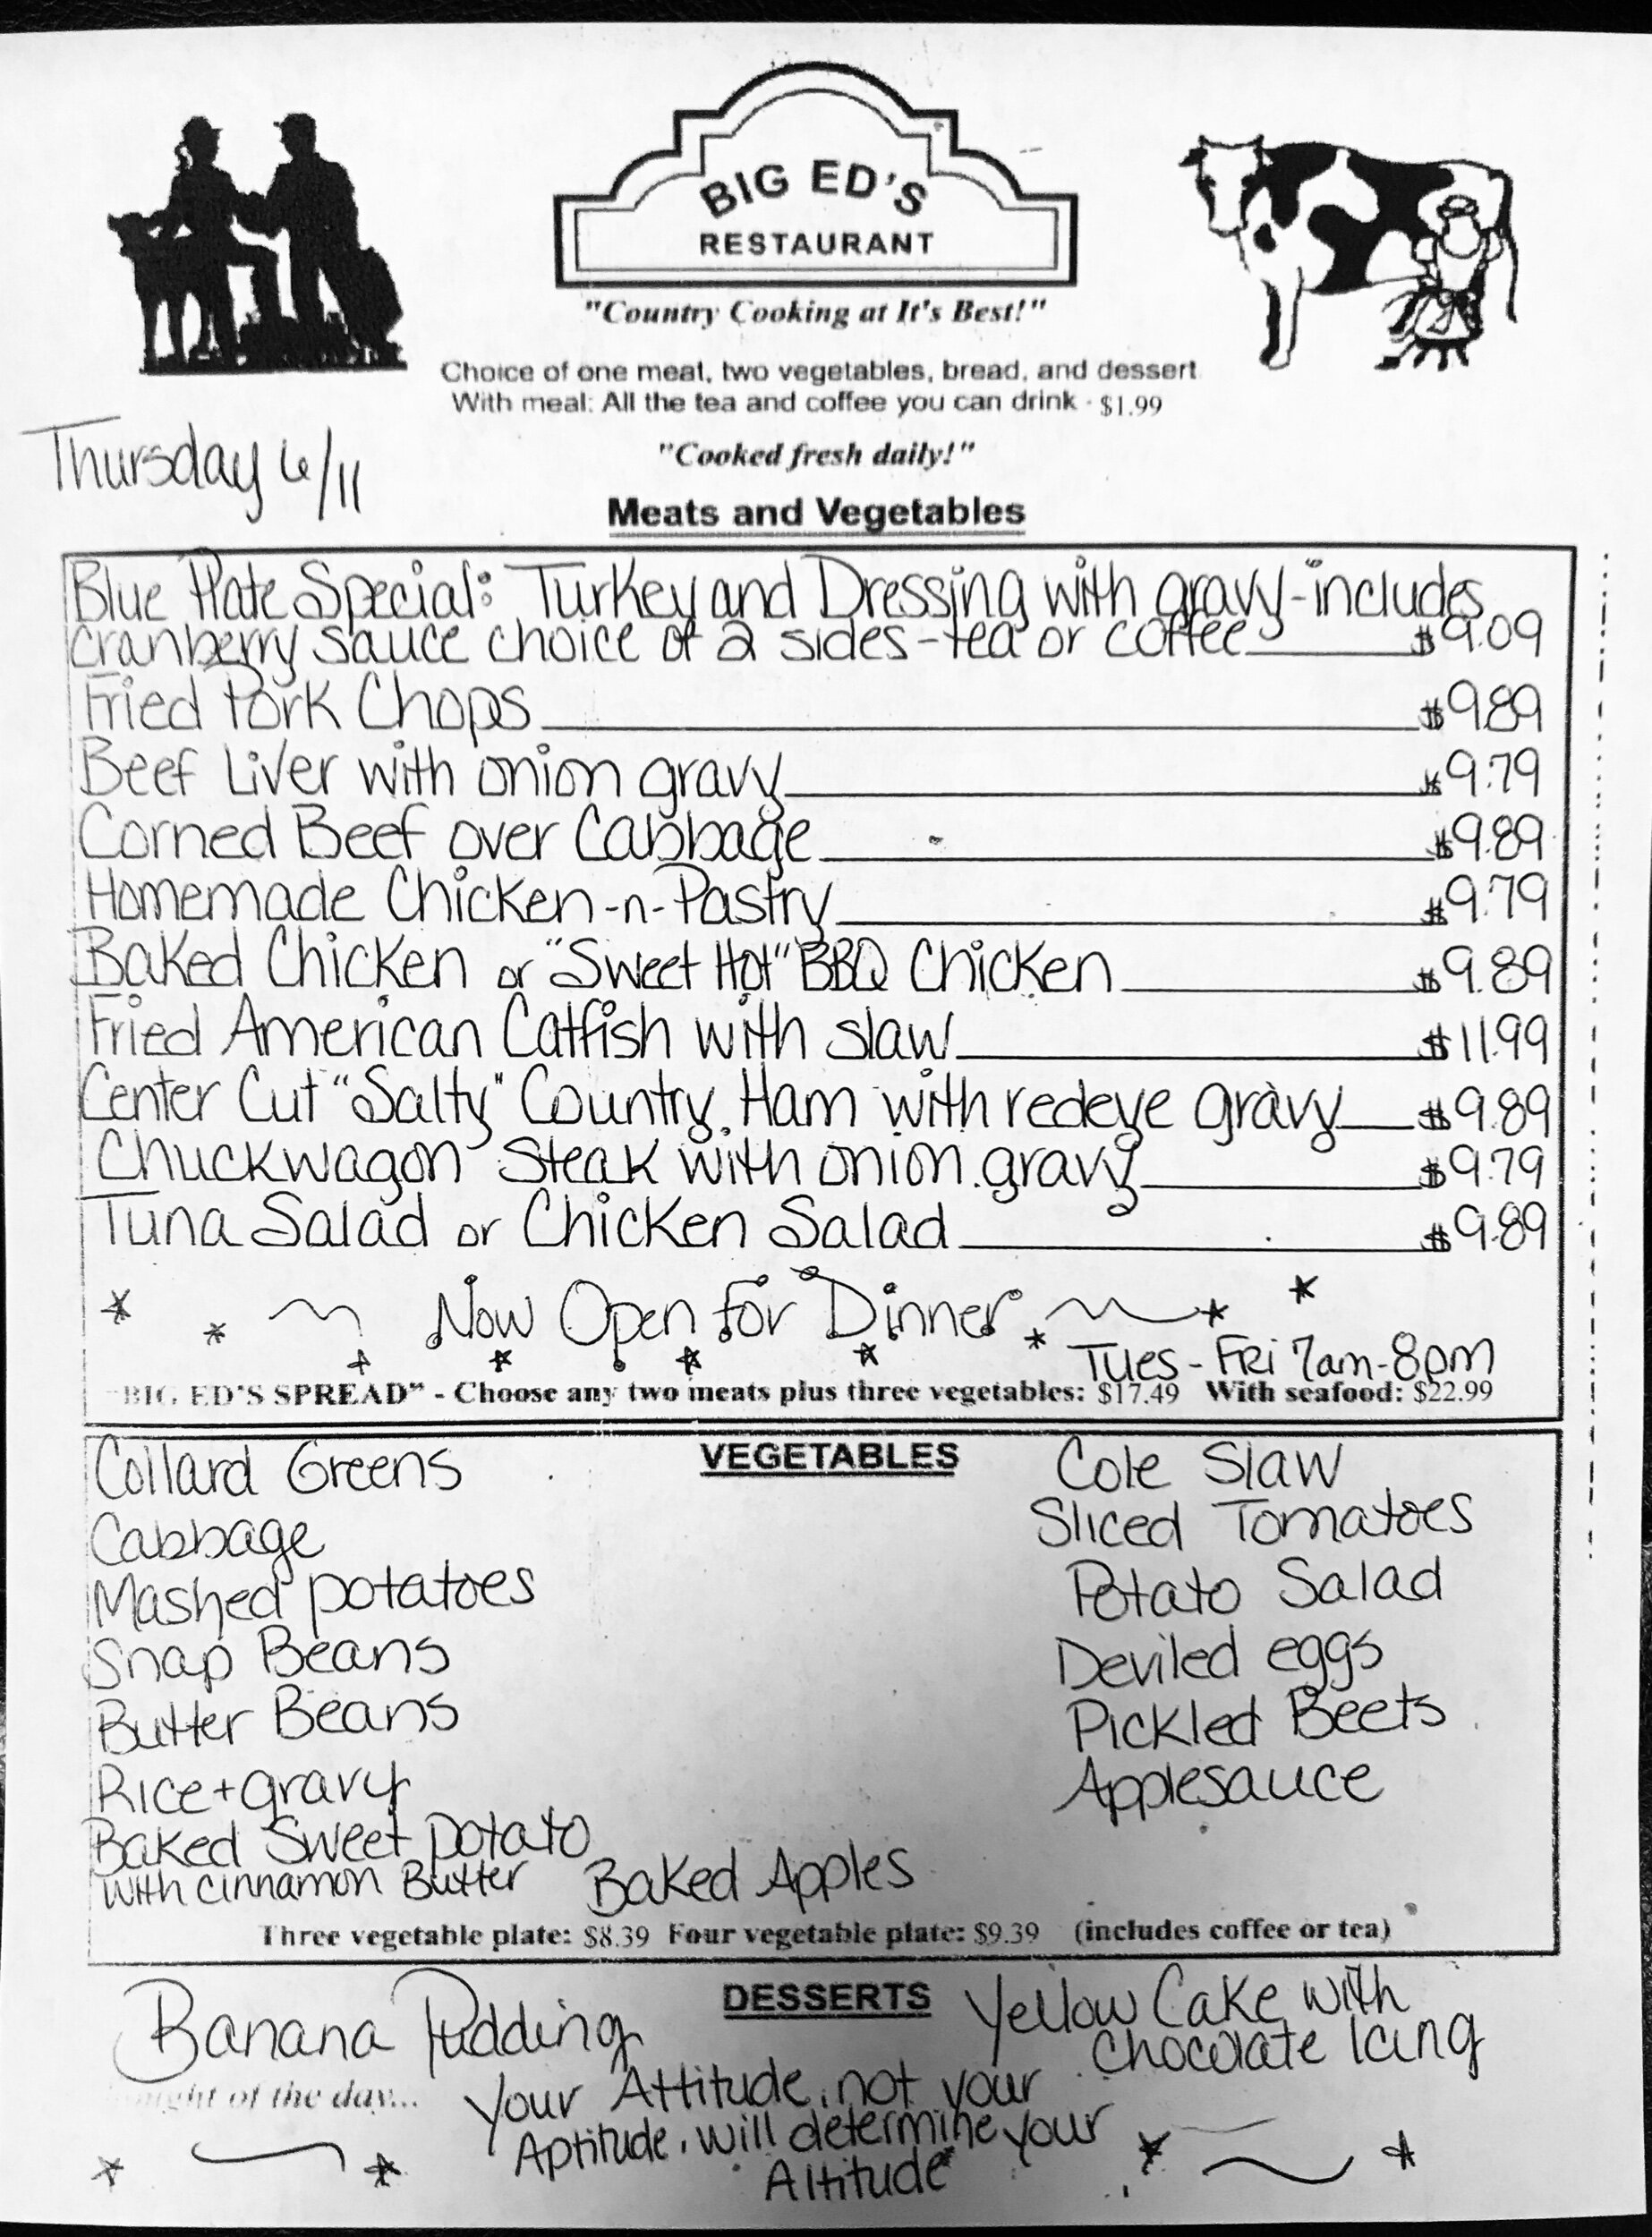 BIG ED'S
RESTAURANT
"Country Cooking at It's Best!"
Choice of one meat, two vegetables, bread, and dessert
With meal: All the tea and coffee you can drink - $1.99
Thursday 6/11
"Cooked fresh daily!"
Meats and Vegetables
Blue Plate Special: Turkey and Dressing with gravy-includes
cranberry sauce choice of 2 sides-tea or coffee $9.09
Fried Pork Chops $9.89
Beef Liver with onion gravy $9.79
Corned Beef over Cabbage $9.89
Homemade Chicken-n-Pastry $9.79
Baked Chicken or "Sweet Hot" BBQ Chicken $9.89
Fried American Catfish with slaw $11.99
Center Cut "Salty" Country Ham with redeye gravy $9.89
Chuckwagon Steak with onion gravy $9.79
Tuna Salad or Chicken Salad $9.89
Now Open For Dinner
Tues - Fri 7am-8pm
"BIG ED'S SPREAD" - Choose any two meats plus three vegetables: $17.49 With seafood: $22.99
VEGETABLES
Collard Greens
Cabbage
Mashed potatoes
Snap Beans
Butter Beans
Rice + gravy
Baked Sweet potato
with cinnamon Butter
Baked Apples
Cole Slaw
Sliced Tomatoes
Potato Salad
Deviled eggs
Pickled Beets
Applesauce
Three vegetable plate: $8.39 Four vegetable plate: $9.39 (includes coffee or tea)
DESSERTS
Banana Pudding
Yellow Cake with
Chocolate Icing
of the day...
Your Attitude, not your
Aptitude, will determine your
Altitude